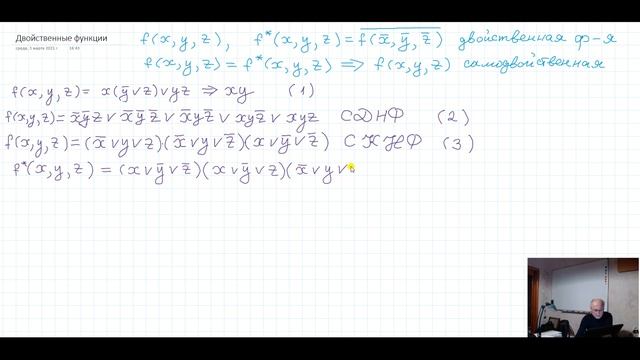 Двойственные функции
среда, 3 марта 2021 г. 16:43
f(x,y,z), f*(x,y,z) = \overline{f(x̄,ȳ,z̄)} двойственная ф-я
f(x,y,z) = f*(x,y,z) ⟹ f(x,y,z) самодвойственная
f(x,y,z) = x(ȳ∨z)∨yz ⇒ xy (1)
f(x,y,z) = x̄ȳz ∨ x̄ȳz̄ ∨ x̄yz̄ ∨ xyz̄ ∨ xyz СДНФ (2)
f(x,y,z) = (x∨y∨z)(x̄∨y∨z̄)(x∨ȳ∨z̄) СКНФ (3)
f*(x,y,z) = (x∨ȳ∨z̄)(x∨ȳ∨z)(x̄∨y∨